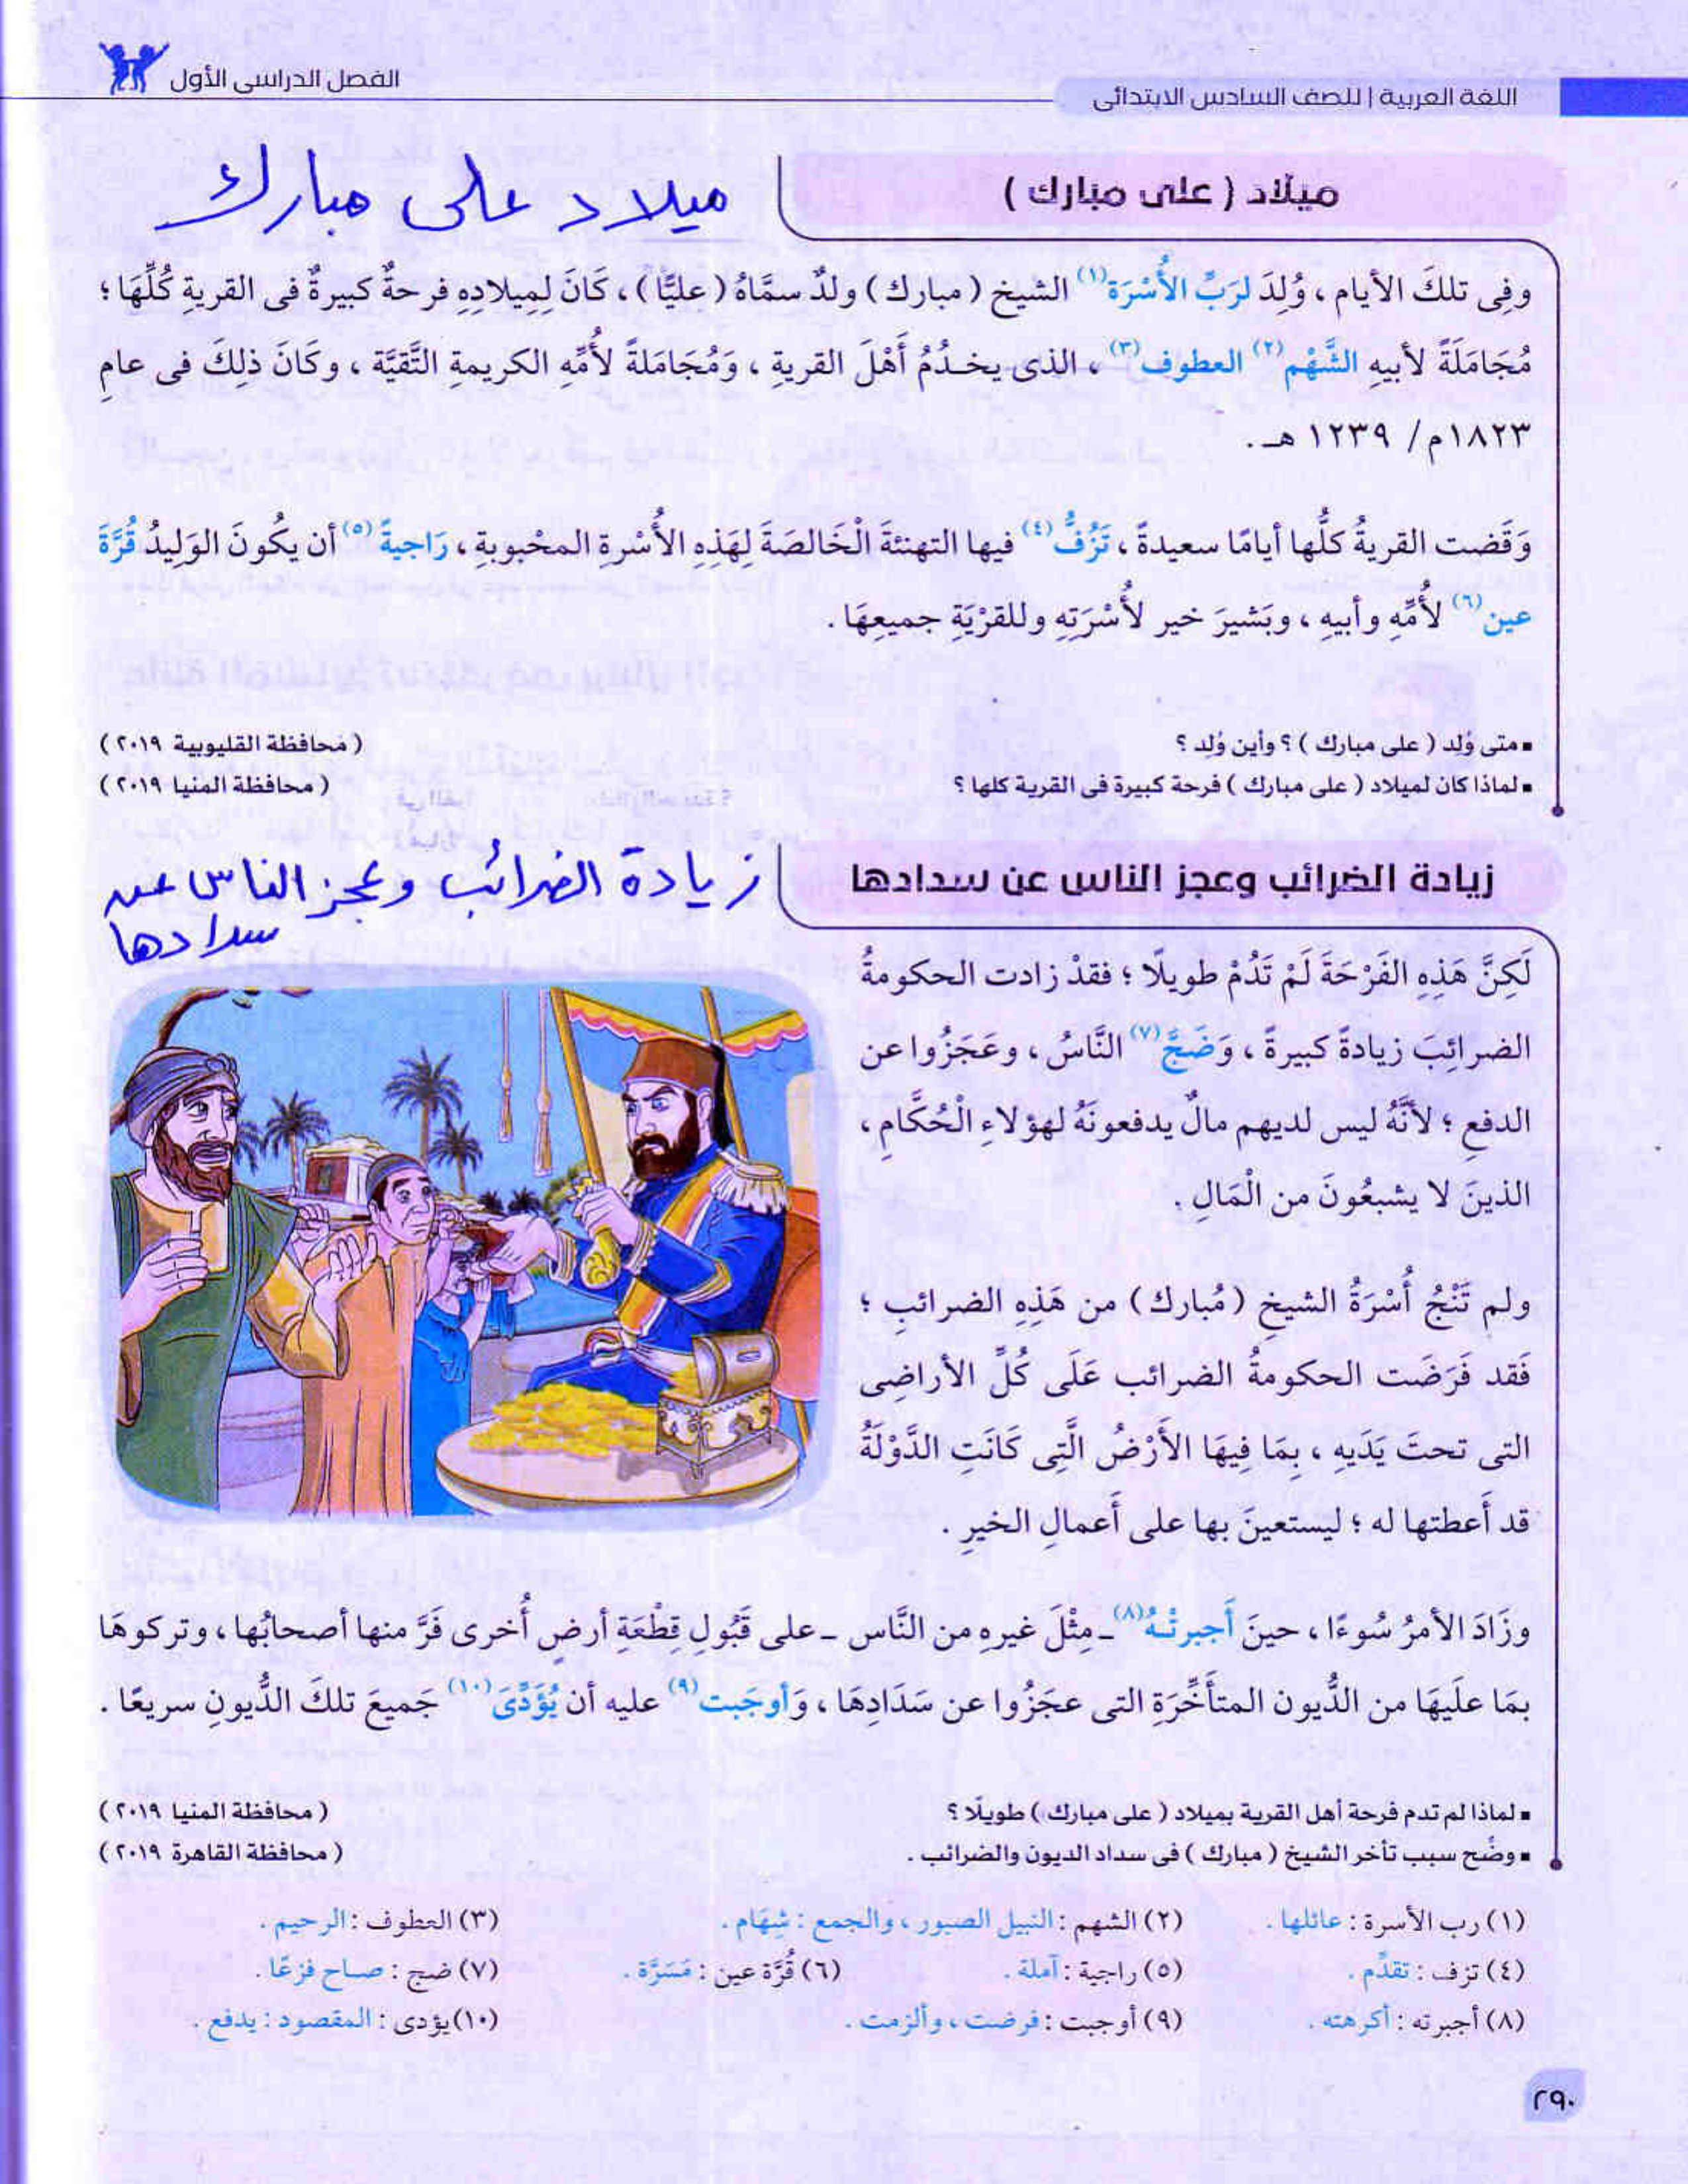 اللغة العربية | للصف السادس الابتدائى
الفصل الدراسى الأول
ميلاد ( على مبارك )
ميلاد على مبارك
وفِى تلكَ الأيام ، وُلِدَ لرَبِّ الأُسْرَة (١) الشيخ ( مبارك ) ولدٌ سمَّاهُ ( عليًّا ) ، كَانَ لِمِيلادِهِ فرحةٌ كبيرةٌ فى القريةِ كُلِّهَا ؛
مُجَامَلَةً لأبيهِ الشَّهْم (٢) العطوف (٣) ، الذى يخدُمُ أَهْلَ القريةِ ، وَمُجَامَلةً لأُمِّهِ الكريمةِ التَّقيَّة ، وكَانَ ذلِكَ فى عامِ
١٨٢٣م / ١٢٣٩ هـ .
وَقَضت القريةُ كلُّها أيامًا سعيدةً ، تَزُفُّ (٤) فيها التهنئةَ الْخَالصَةَ لِهَذِهِ الأُسْرةِ المحْبوبةِ ، رَاجيةً (٥) أن يكُونَ الوَليدُ قُرَّةَ
عين (٦) لأُمِّهِ وأبيهِ ، وبَشيرَ خير لأُسْرَتِهِ وللقرْيَةِ جميعِهَا .
▪ متى وُلد ( على مبارك ) ؟ وأين وُلد ؟ ( محافظة القليوبية ٢٠١٩ )
▪ لماذا كان لميلاد ( على مبارك ) فرحة كبيرة فى القرية كلها ؟ ( محافظة المنيا ٢٠١٩ )
زيادة الضرائب وعجز الناس عن سدادها
زيادة الضرائب وعجز الناس عن
سدادها
لَكِنَّ هَذِهِ الفَرْحَةَ لَمْ تَدُمْ طويلًا ؛ فقدْ زادت الحكومةُ
الضرائِبَ زيادةً كبيرةً ، وَضَجَّ (٧) النَّاسُ ، وعَجَزُوا عن
الدفعِ ؛ لأنَّهُ ليس لديهم مالٌ يدفعونَهُ لهؤلاءِ الْحُكَّامِ ،
الذينَ لا يشبعُونَ من الْمَالِ .
ولم تَنْجُ أُسْرَةُ الشيخِ (مُبارك) من هَذِهِ الضرائبِ ؛
فَقد فَرَضَت الحكومةُ الضرائب عَلَى كُلِّ الأراضِى
التى تحتَ يَدَيهِ ، بِمَا فِيهَا الأَرْضُ الَّتِى كَانَتِ الدَّوْلَةُ
قد أَعطتها له ؛ ليستعينَ بها على أَعمالِ الخيرِ .
وزَادَ الأمرُ سُوءًا ، حينَ أَجبرتْهُ (٨) ـ مِثْلَ غيرِهِ من النَّاس ـ على قَبُولِ قِطْعَةِ أرضٍ أُخرى فَرَّ منها أصحابُها ، وتركوهَا
بمَا علَيهَا من الدُّيون المتأَخِّرَةِ التى عجَزُوا عن سَدَادِهَا ، وَأوجَبت (٩) عليه أن يُؤَدِّىَ (١٠) جَميعَ تلكَ الدُّيونِ سريعًا .
▪ لماذا لم تدم فرحة أهل القرية بميلاد ( على مبارك ) طويلًا ؟ ( محافظة المنيا ٢٠١٩ )
▪ وضِّح سبب تأخر الشيخ ( مبارك ) فى سداد الديون والضرائب . ( محافظة القاهرة ٢٠١٩ )
(١) رب الأسرة : عائلها . (٢) الشهم : النبيل الصبور ، والجمع : شِهَام . (٣) العطوف : الرحيم .
(٤) تزف : تقدِّم . (٥) راجية : آملة . (٦) قُرَّة عين : مَسَرَّة . (٧) ضج : صاح فزعًا .
(٨) أجبرته : أكرهته . (٩) أوجبت : فرضت ، وألزمت . (١٠) يؤدى : المقصود : يدفع .
٢٩٠